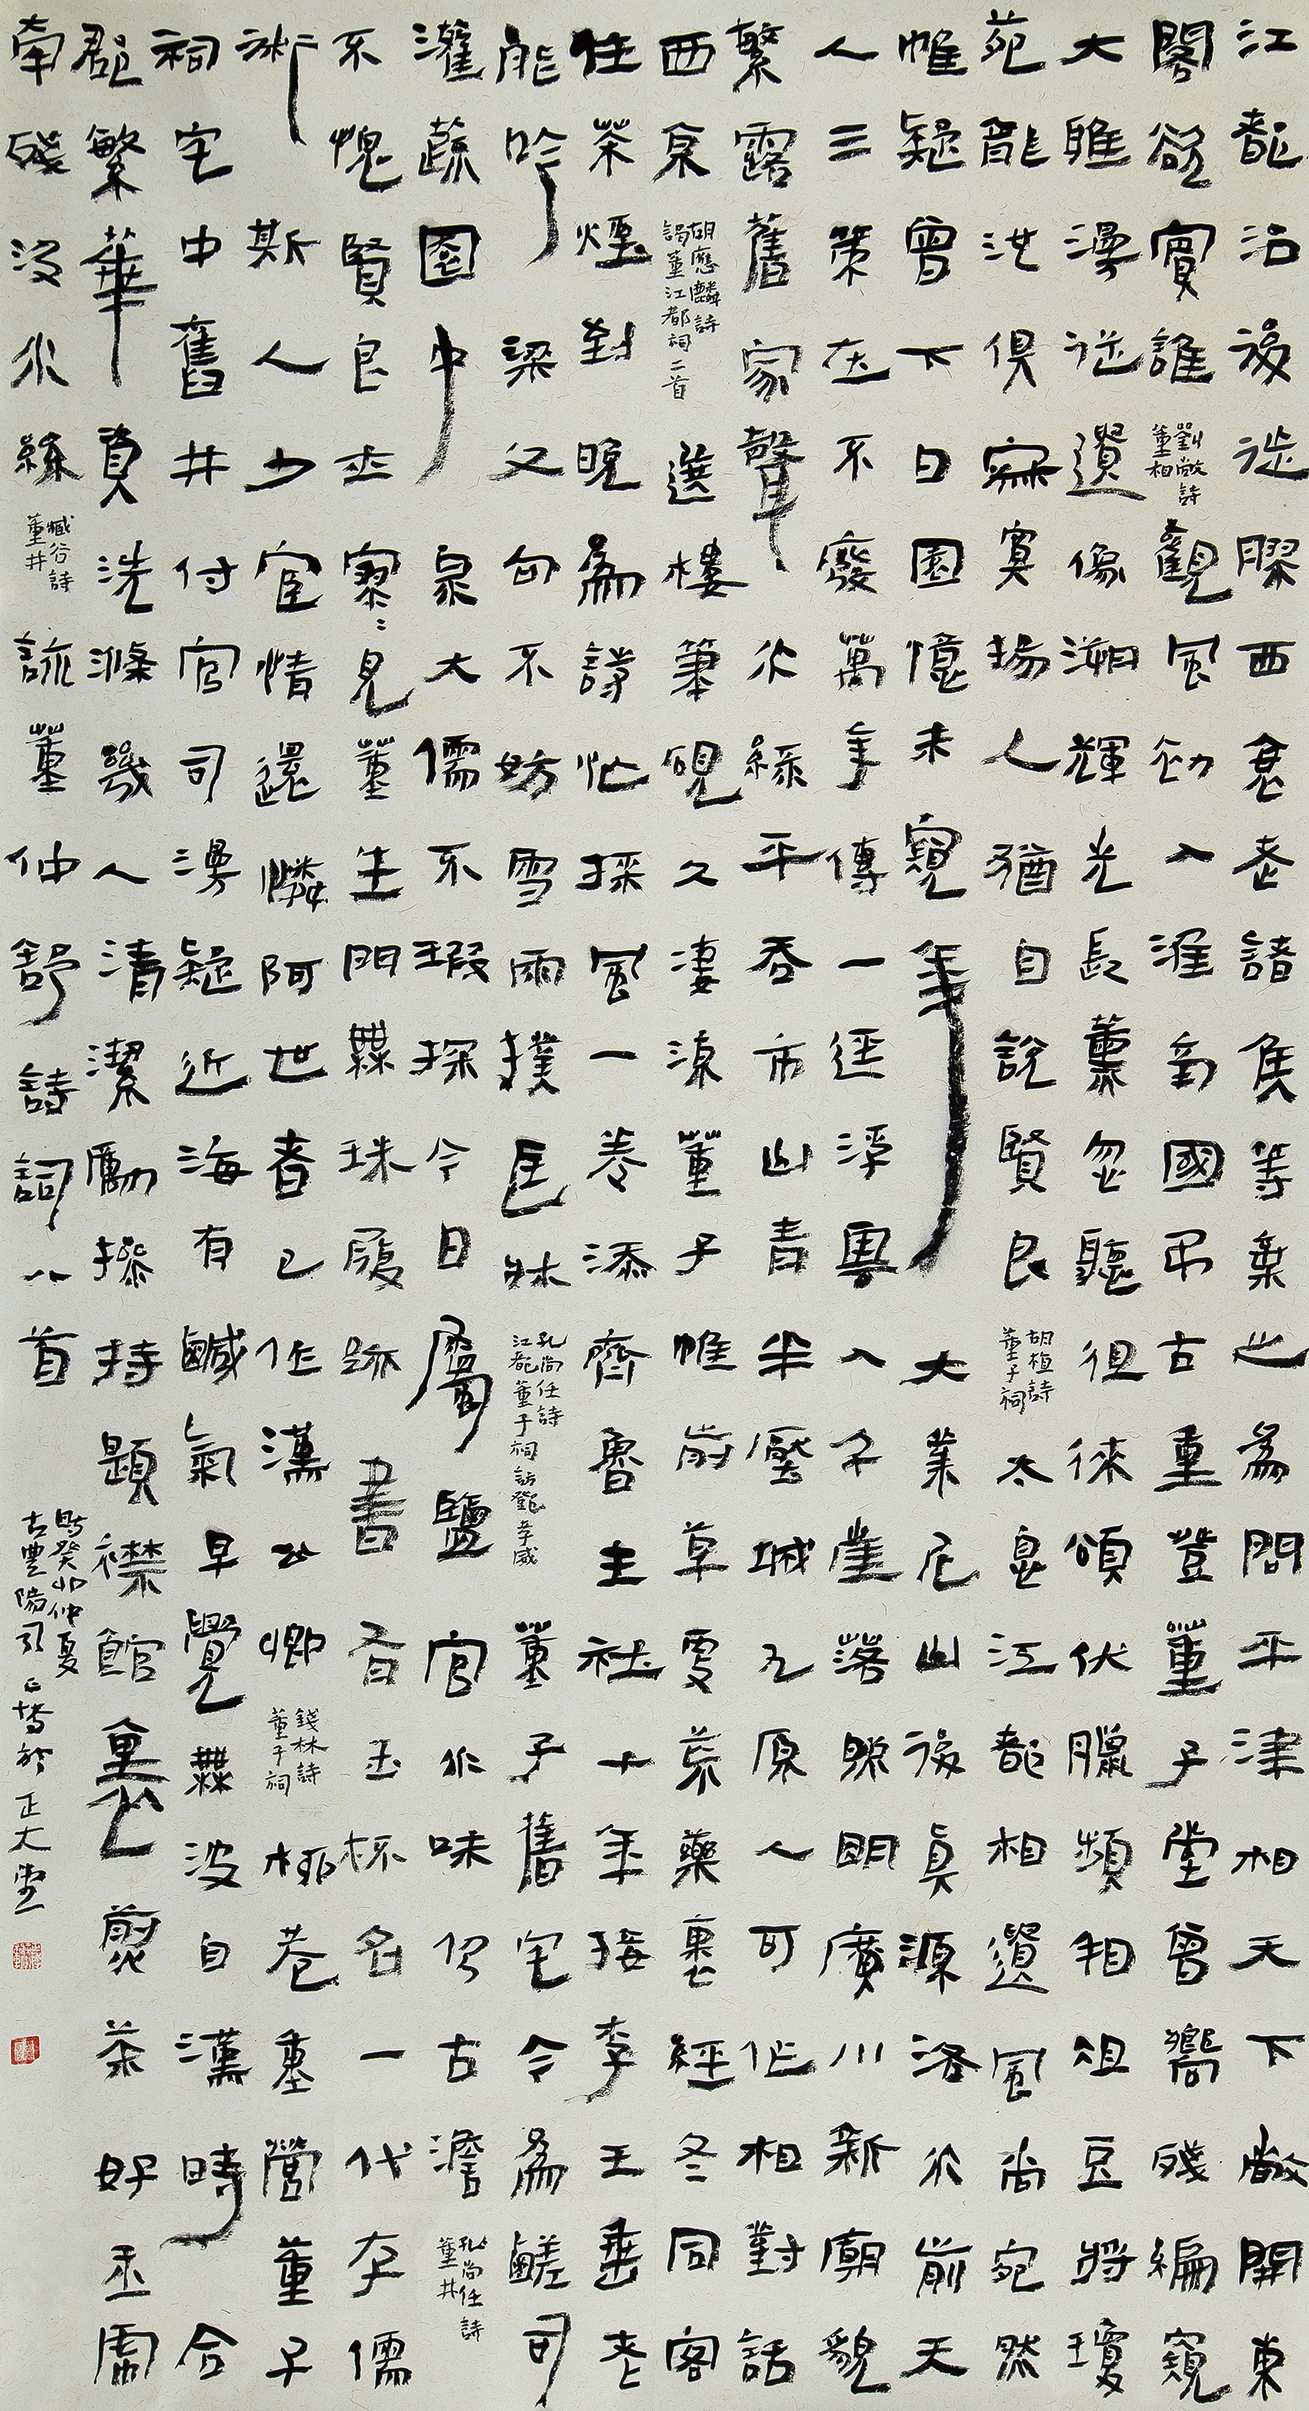 江都治後徙膠西衰老諸侯等棄之為問平津相天下敞開東
閣欲賓誰
劉敞詩
董相
觀風初入淮南國弔古重登董子堂曾嚮殘編窺
大雅漫從遺像溯輝光長薰忽聽徂徠頌伏臘頻相俎豆將瓊
苑龍池俱寂寞揚人猶自說賢良
胡植詩
董子祠
太息江都相遺風尚宛然
帷疑曾下日園憶未窺年大業尼山後真源洛水前天
人三策在不廢萬年傳一徑浮雲入千崖落照明廣川新廟貌
繁露舊家聲水綠平吞市山青半壓城九原人可作相對話
西京
胡應麟詩
謁董江都祠二首
選樓筆硯久淒涼董子帷前草更荒藥裹經冬同客
住茶煙到晚為詩忙採風一卷添齊魯主社十年接李王垂老
能吟梁父句不妨雪雨撲匡牀
孔尚任詩
江都董子祠訪鄧孝威
董子舊宅今為鹺司
灌蔬園中泉大儒不暇探今日屬鹽官水味仍古澹
孔尚任詩
董井
不愧賢良士寥寥見董生門無珠履跡書有玉杯名一代存儒
術斯人少宦情還憐阿世者已作漢公卿
錢林詩
董子祠
桃巷重營董子
祠宅中舊井付官司漫疑近海有鹹氣早覺無波自漢時合
郡繁華真洗滌幾人清潔勵操持題襟館裏煎茶好玉虎
牽殘汲水絲
臧谷詩
董井
詠董仲舒詩詞八首
時癸卯仲夏
古豐陽書於正大堂